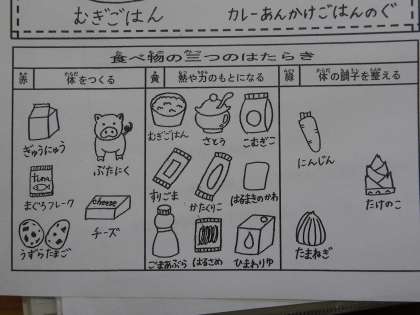 むぎごはん
カレーあんかけごはんのぐ
食べ物の三つのはたらき
赤 体をつくる
黄 熱や力のもとになる
緑 体の調子を整える
ぎゅうにゅう
ぶたにく
tuna
まぐろフレーク
cheese
チーズ
うずらたまご
むぎごはん
さとう
こむぎこ
すりごま
かたくりこ
はるまきのかわ
ごまあぶら
はるさめ
ひまわりゆ
にんじん
たけのこ
たまねぎ